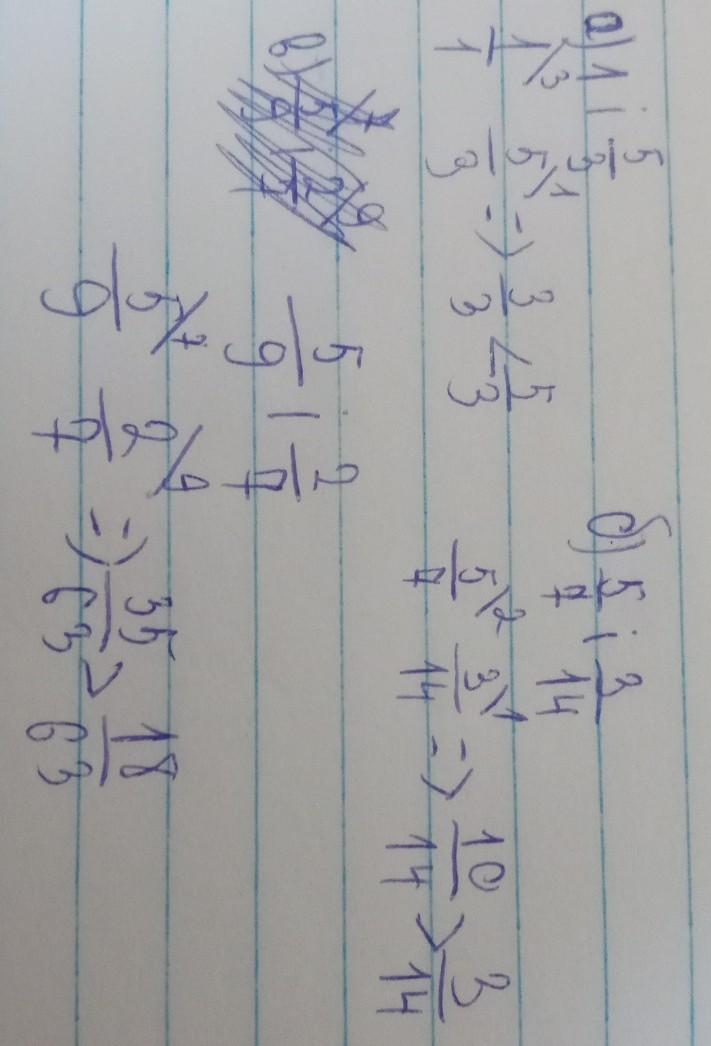 а) 1 і 5/3
1/1 \3 5/3 \1 => 3/3 < 5/3
б) 5/7 і 3/14
5/7 \2 3/14 \1 => 10/14 > 3/14
в) 5/9 і 2/7
5/9 \7 2/7 \9 => 35/63 > 18/63